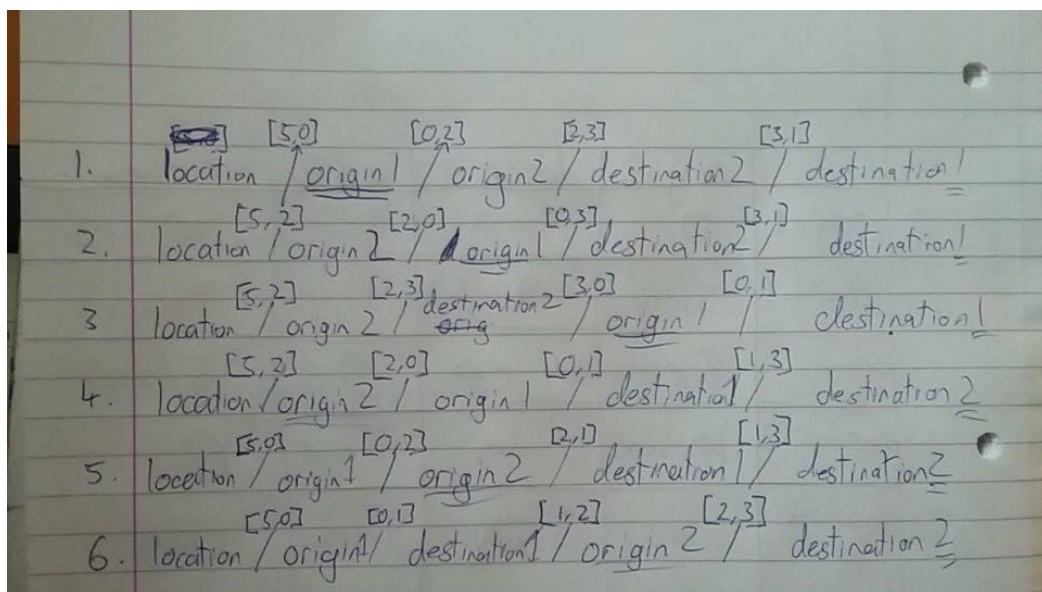 [5,0] [0,2] [2,3] [3,1]
1. location / origin1 / origin2 / destination2 / destination1
[5,2] [2,0] [0,3] [3,1]
2. location / origin2 / origin1 / destination2 / destination1
[5,2] [2,3] destination2 [3,0] [0,1]
3 location / origin2 / orig / origin1 / destination1
[5,2] [2,0] [0,1] [1,3]
4. location / origin2 / origin1 / destination1 / destination2
[5,0] [0,2] [2,1] [1,3]
5. location / origin1 / origin2 / destination1 / destination2
[5,0] [0,1] [1,2] [2,3]
6. location / origin1 / destination1 / origin2 / destination2